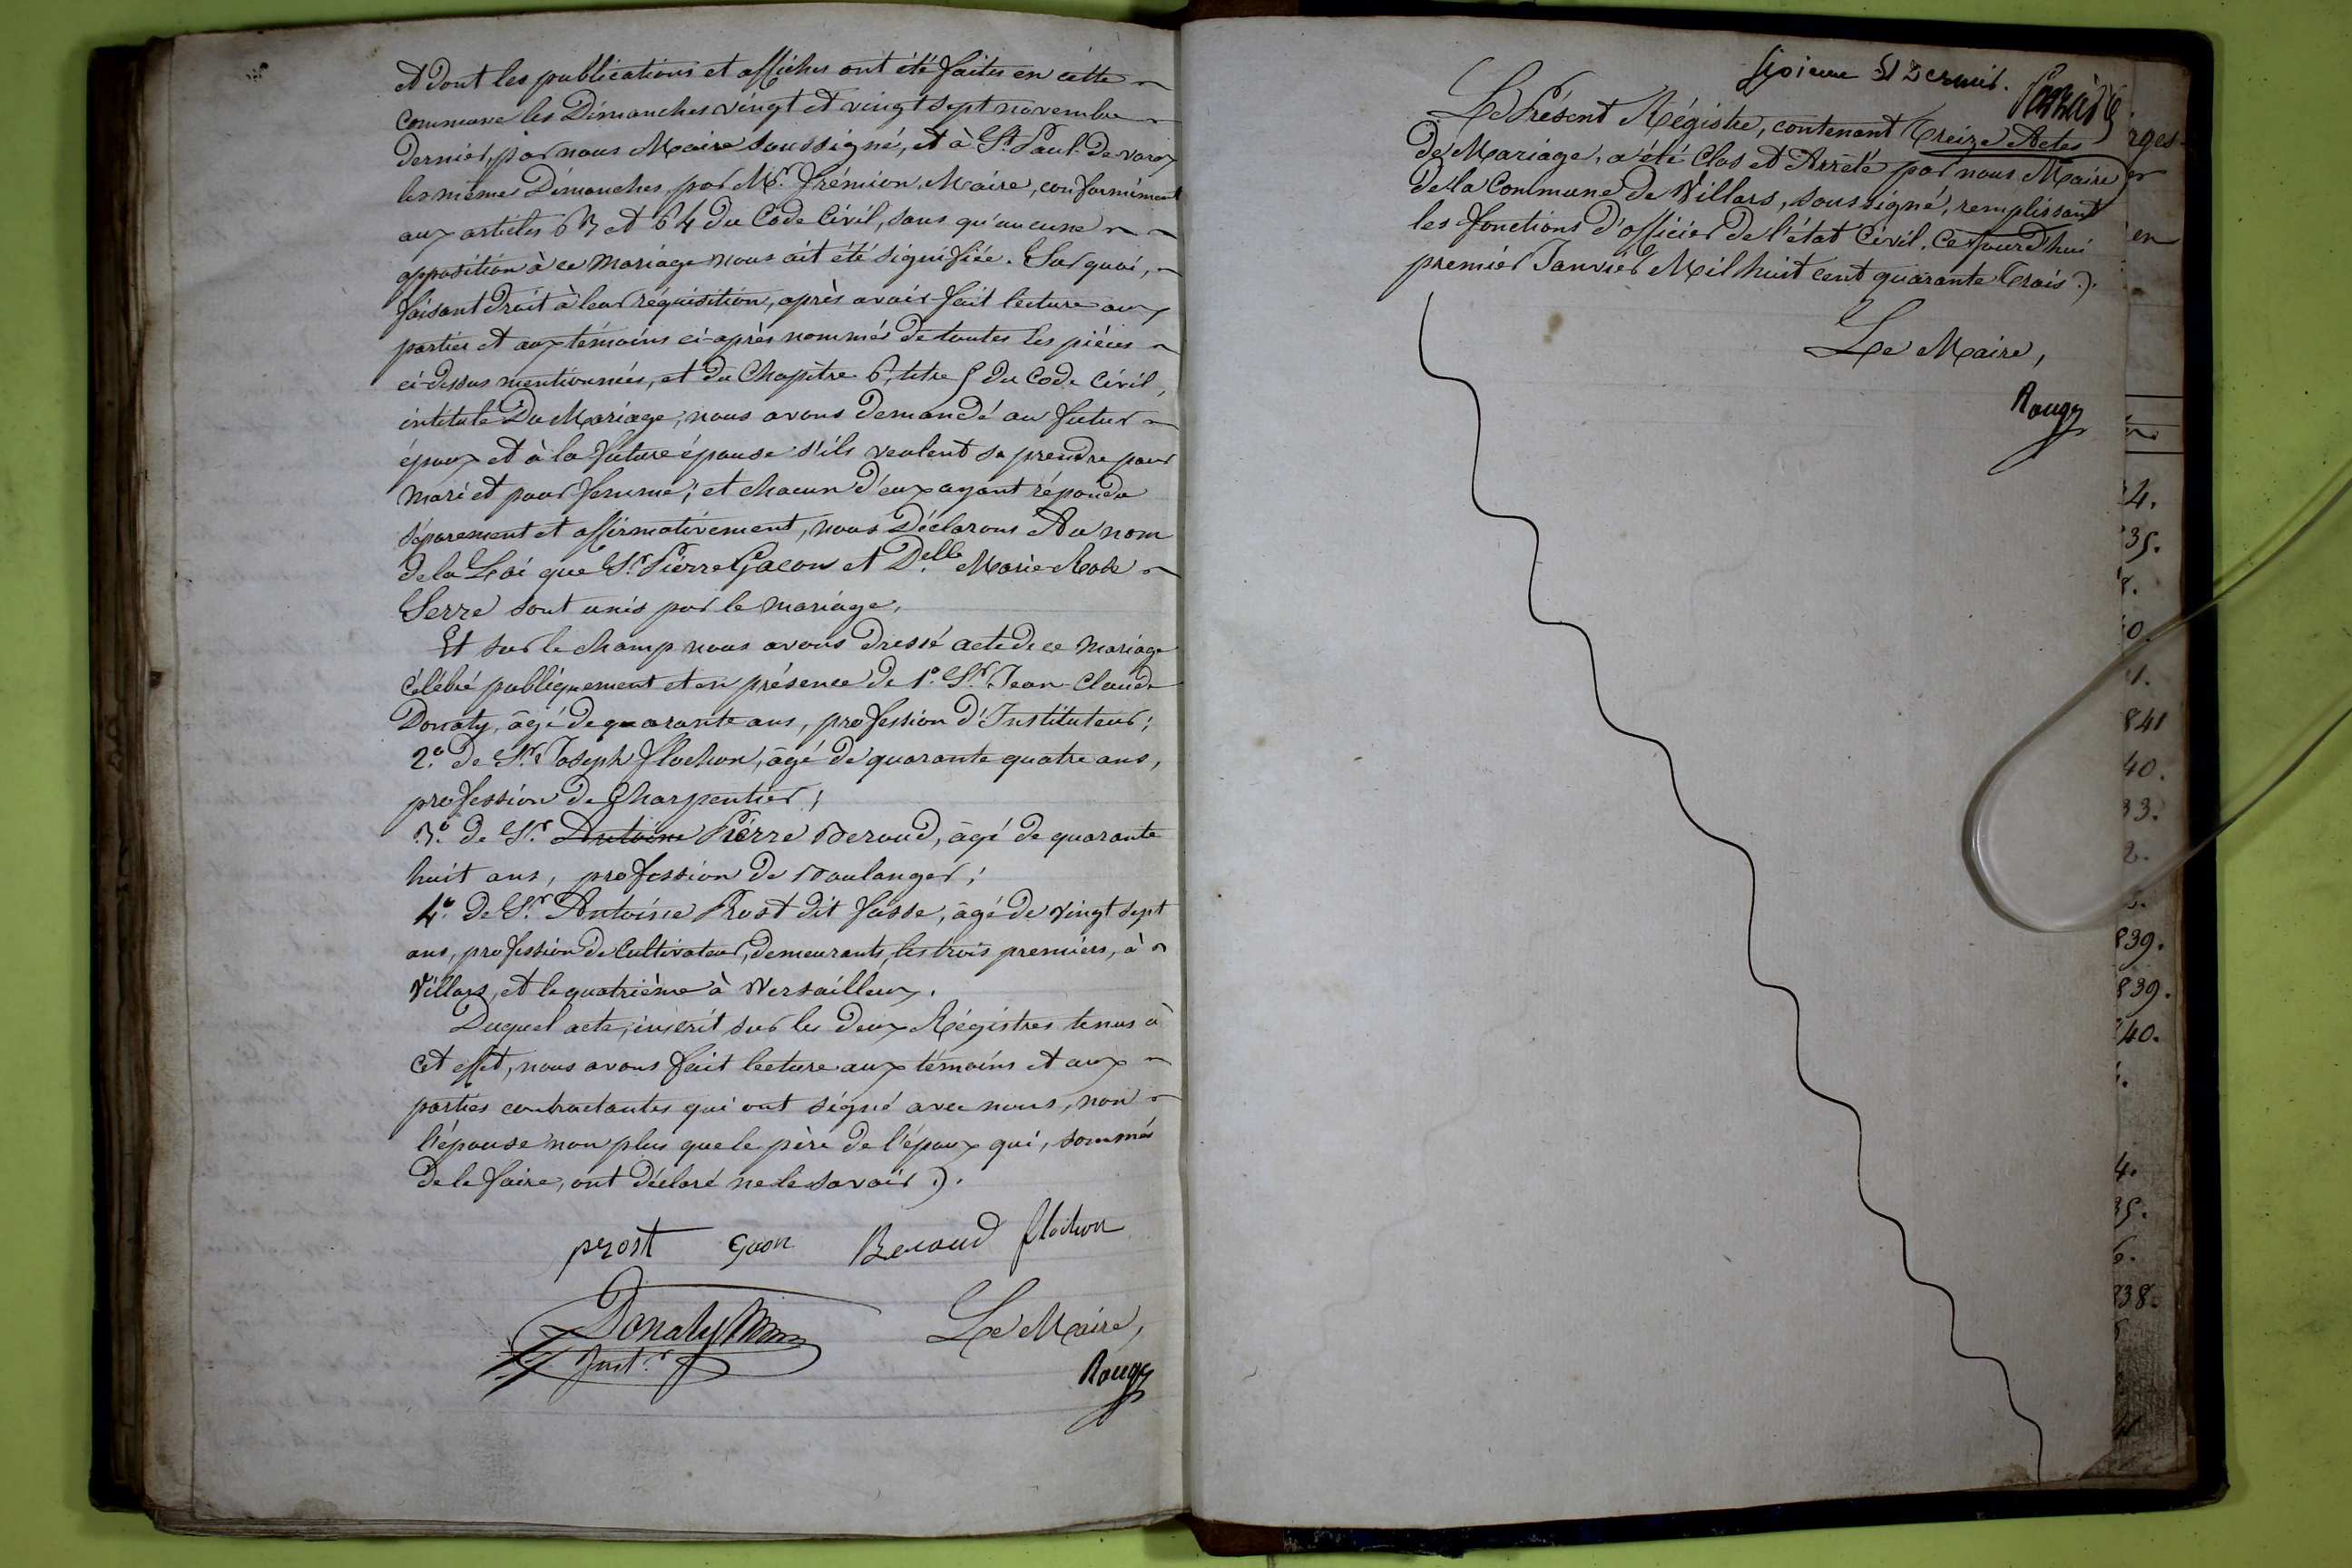 et dont les publications et affiches ont été faites en cette
commune les Dimanches vingt et vingt sept novembre
dernier, par nous Maire soussigné, et à St. Paul-de-varax
les même Dimanches, par Mr. Frémion, Maire, conformément
aux articles 63 et 64 du Code Civil, sans qu'aucune
opposition à ce mariage nous ait été signifiée. Sur quoi,
faisant droit à leur réquisition, après avoir fait lecture aux
parties et aux témoins ci-après nommés de toutes les pièces
ci-dessus mentionnées, et du Chapitre 6, titre 5 du Code Civil,
intitulé Du Mariage, nous avons demandé au futur
époux et à la future épouse s'ils veulent se prendre pour
mari et pour femme; et chacun d'eux ayant répondu
séparement et affirmativement, nous déclarons Au nom
de la Loi que Sr. Pierre Gacon et Delle Marie Rose
Serre sont unis par le mariage.
Et sur le champ nous avons dressé acte de ce mariage
célébré publiquement et en présence de 1° Sr. Jean-Claude
Donaty, âgé de quarante ans, profession d'Instituteur;
2° de Sr. Joseph flochon, âgé de quarante quatre ans,
profession de Charpentier;
3° de Sr. Antoine Pierre Beroud, âgé de quarante
huit ans, profession de Boulanger;
4° de Sr. Antoine Prost dit fasse, âgé de vingt sept
ans, profession de Cultivateur, demeurants, les trois premiers, à
Villars, et le quatrième à Versailleux.
Duquel acte, inscrit sur les deux Régistres tenus à
cet effet, nous avons fait lecture aux témoins et aux
parties contractantes qui ont signé avec nous, non
l'épouse non plus que le père de l'époux qui, sommés
de le faire, ont déclaré ne le savoir.
prost Gaon Beroud flochon
Donaty
Inst.r
Le Maire,
Rougy
et Dernier.
Le Présent Régistre, contenant Treize Actes
de Mariage, a été Clos et Arrêté par nous Maire
de la Commune de Villars, soussigné, remplissant
les fonctions d'officier de l'état Civil. Ce jourd'hui
premier Janvier Mil huit cent quarante Trois.
Le Maire,
Rougy
rges
en
24.
35.
841
40.
33.
2.
839.
839.
40.
4.
35.
6.
838.